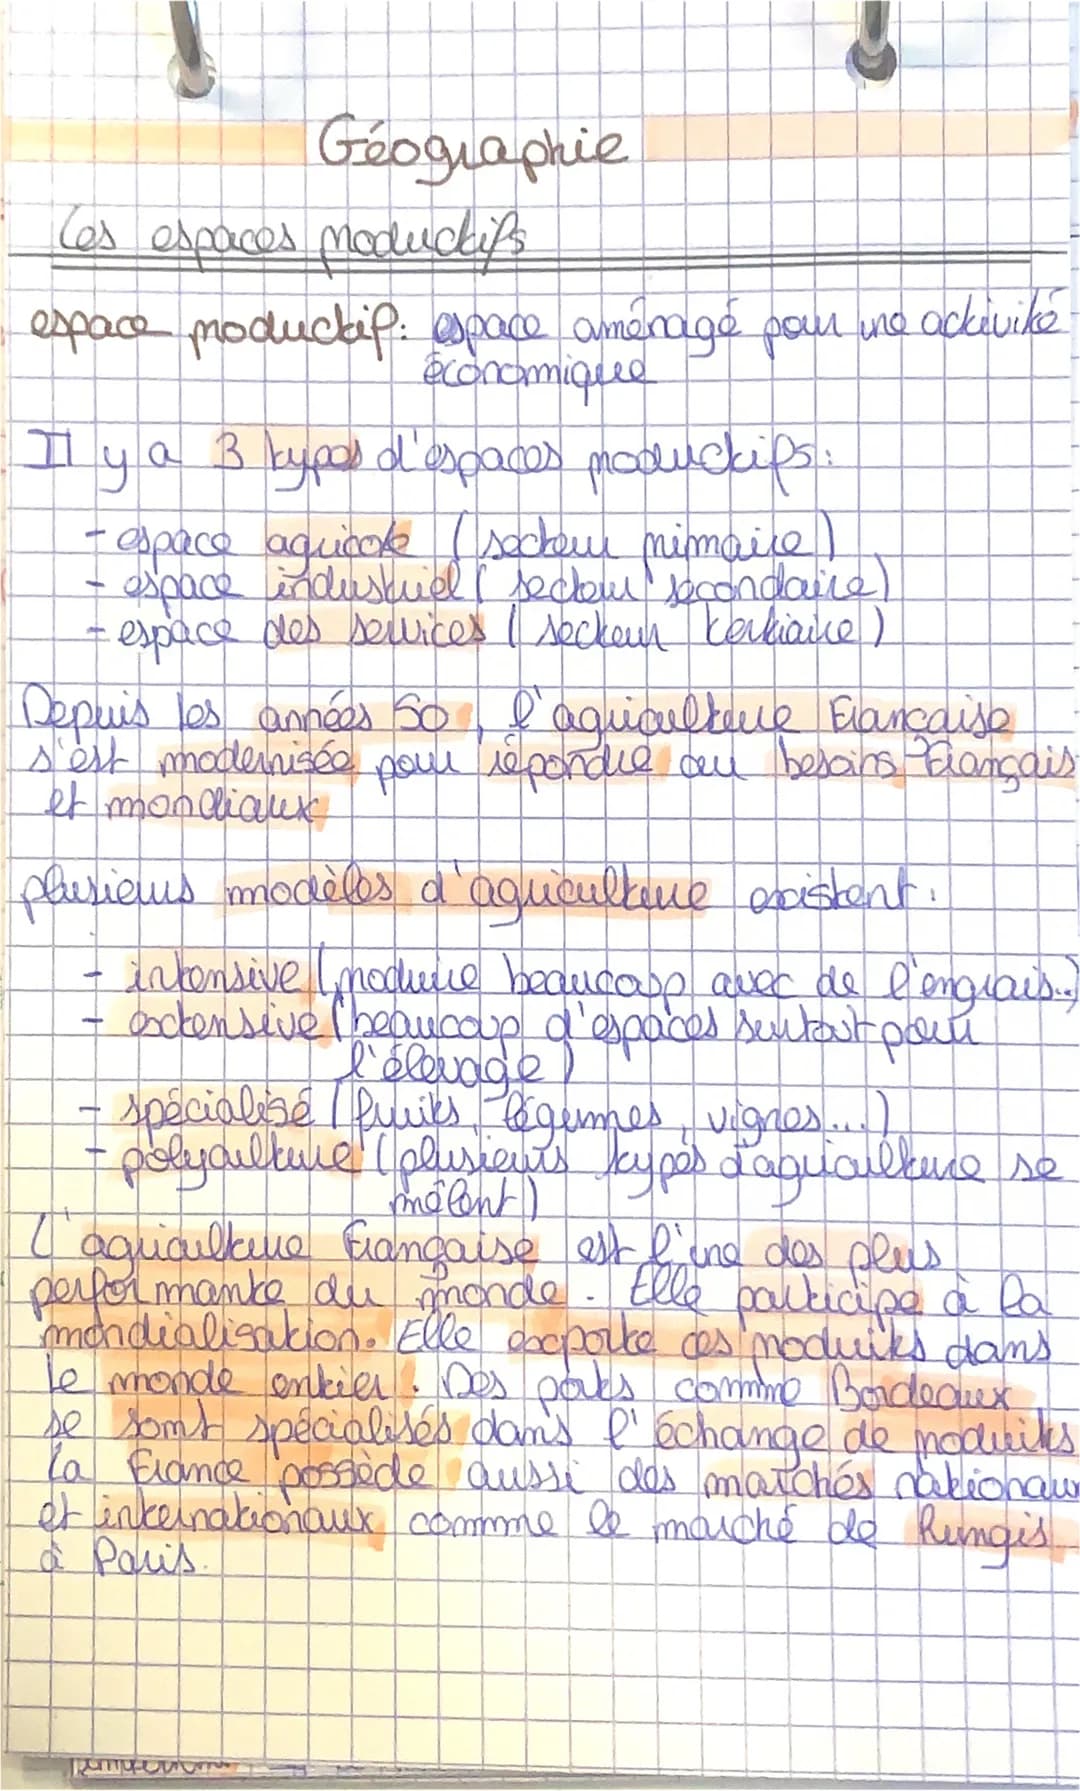 Géographie
Les espaces productifs
espace productif: espace aménagé pour une activité
économique
Il y a 3 types d'espaces productifs:
- espace agricole (secteur primaire)
- espace industriel (secteur secondaire)
- espace des services (secteur tertiaire)
Depuis les années 50, l'agriculture française
s'est modernisée pour répondre au besoins français
et mondiaux
plusieurs modèles d'agriculture existent:
- intensive (produire beaucoup avec de l'engrais...)
- extensive (beaucoup d'espaces surtout pour
l'élevage)
- spécialisé (fruits, légumes, vignes...)
- polyculture (plusieurs types d'agriculture se
mêlent)
L'agriculture française est l'une des plus
performante du monde. Elle participe à la
mondialisation. Elle exporte ces produits dans
le monde entier. Des ports comme Bordeaux
se sont spécialisés dans l'échange de produits
La France possède aussi des marchés nationaux
et internationaux comme le marché de Rungis
à Paris.